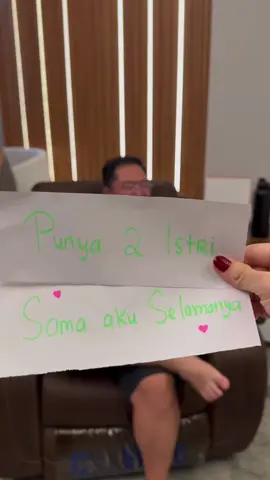 Punya 2 Istri
Sama aku Selamanya